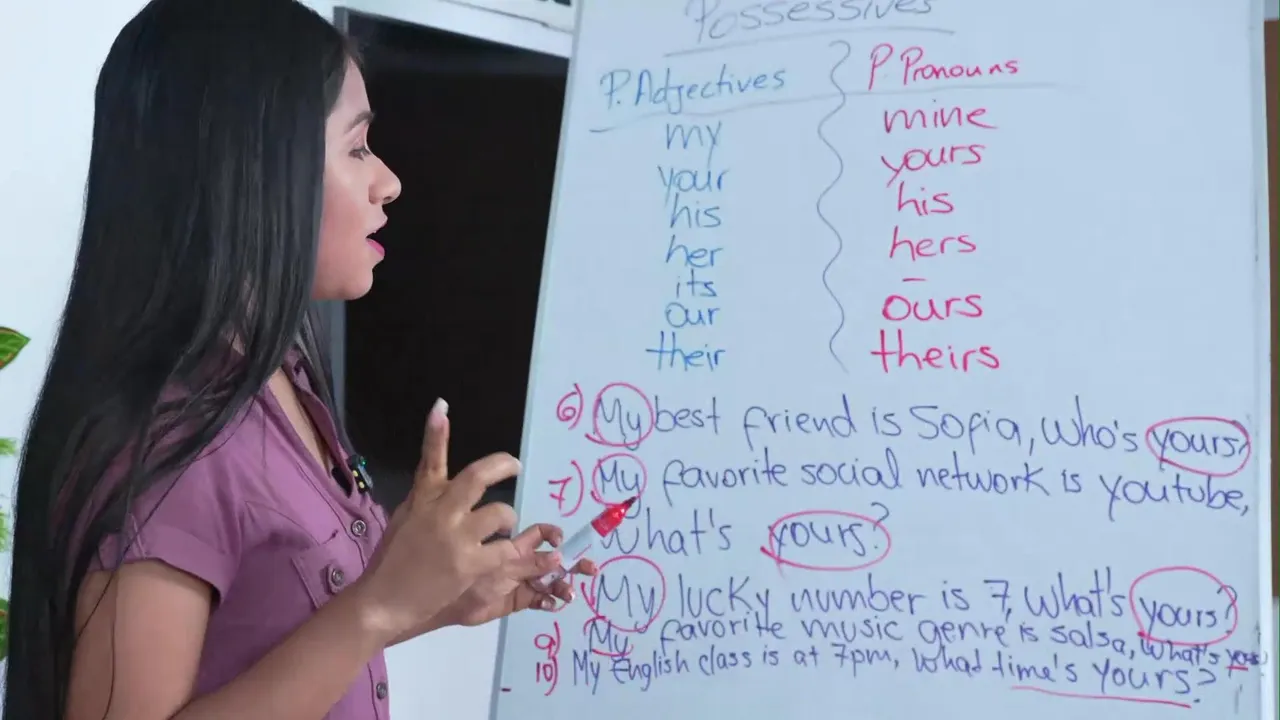 Possessives
P. Adjectives P. Pronouns
my mine
your yours
his his
her hers
its –
our ours
their theirs
6) My best friend is Sofia, Who's yours?
7) My favorite social network is youtube,
What's yours?
My lucky number is 7, What's yours?
9) My favorite music genre is salsa, What's yours?
10) My English class is at 7pm, What time's yours?